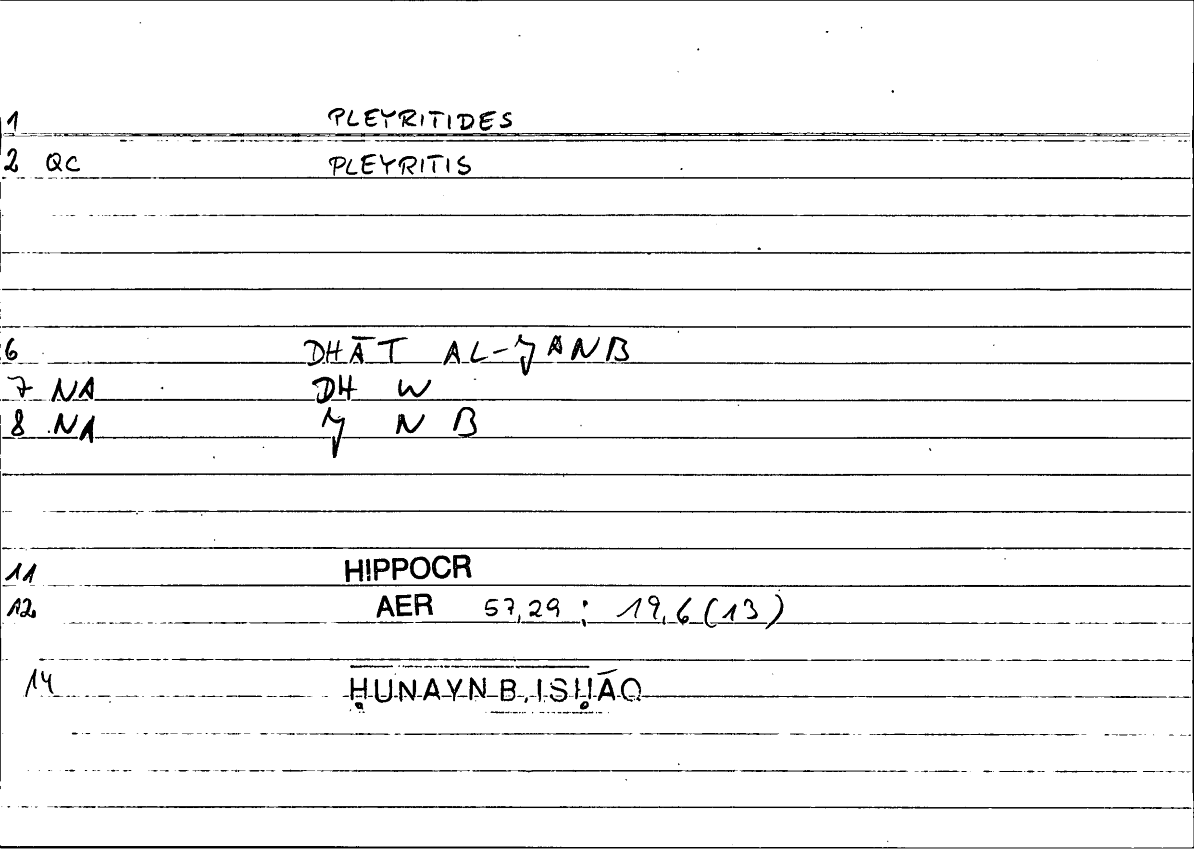 1 PLEYRITIDES
2 QC PLEYRITIS
6 DHĀT AL-JANB
7 NA DH W
8 NA J N B
11 HIPPOCR
12 AER 57,29 : 19,6 (13)
14 ḤUNAYN B. ISḤĀQ